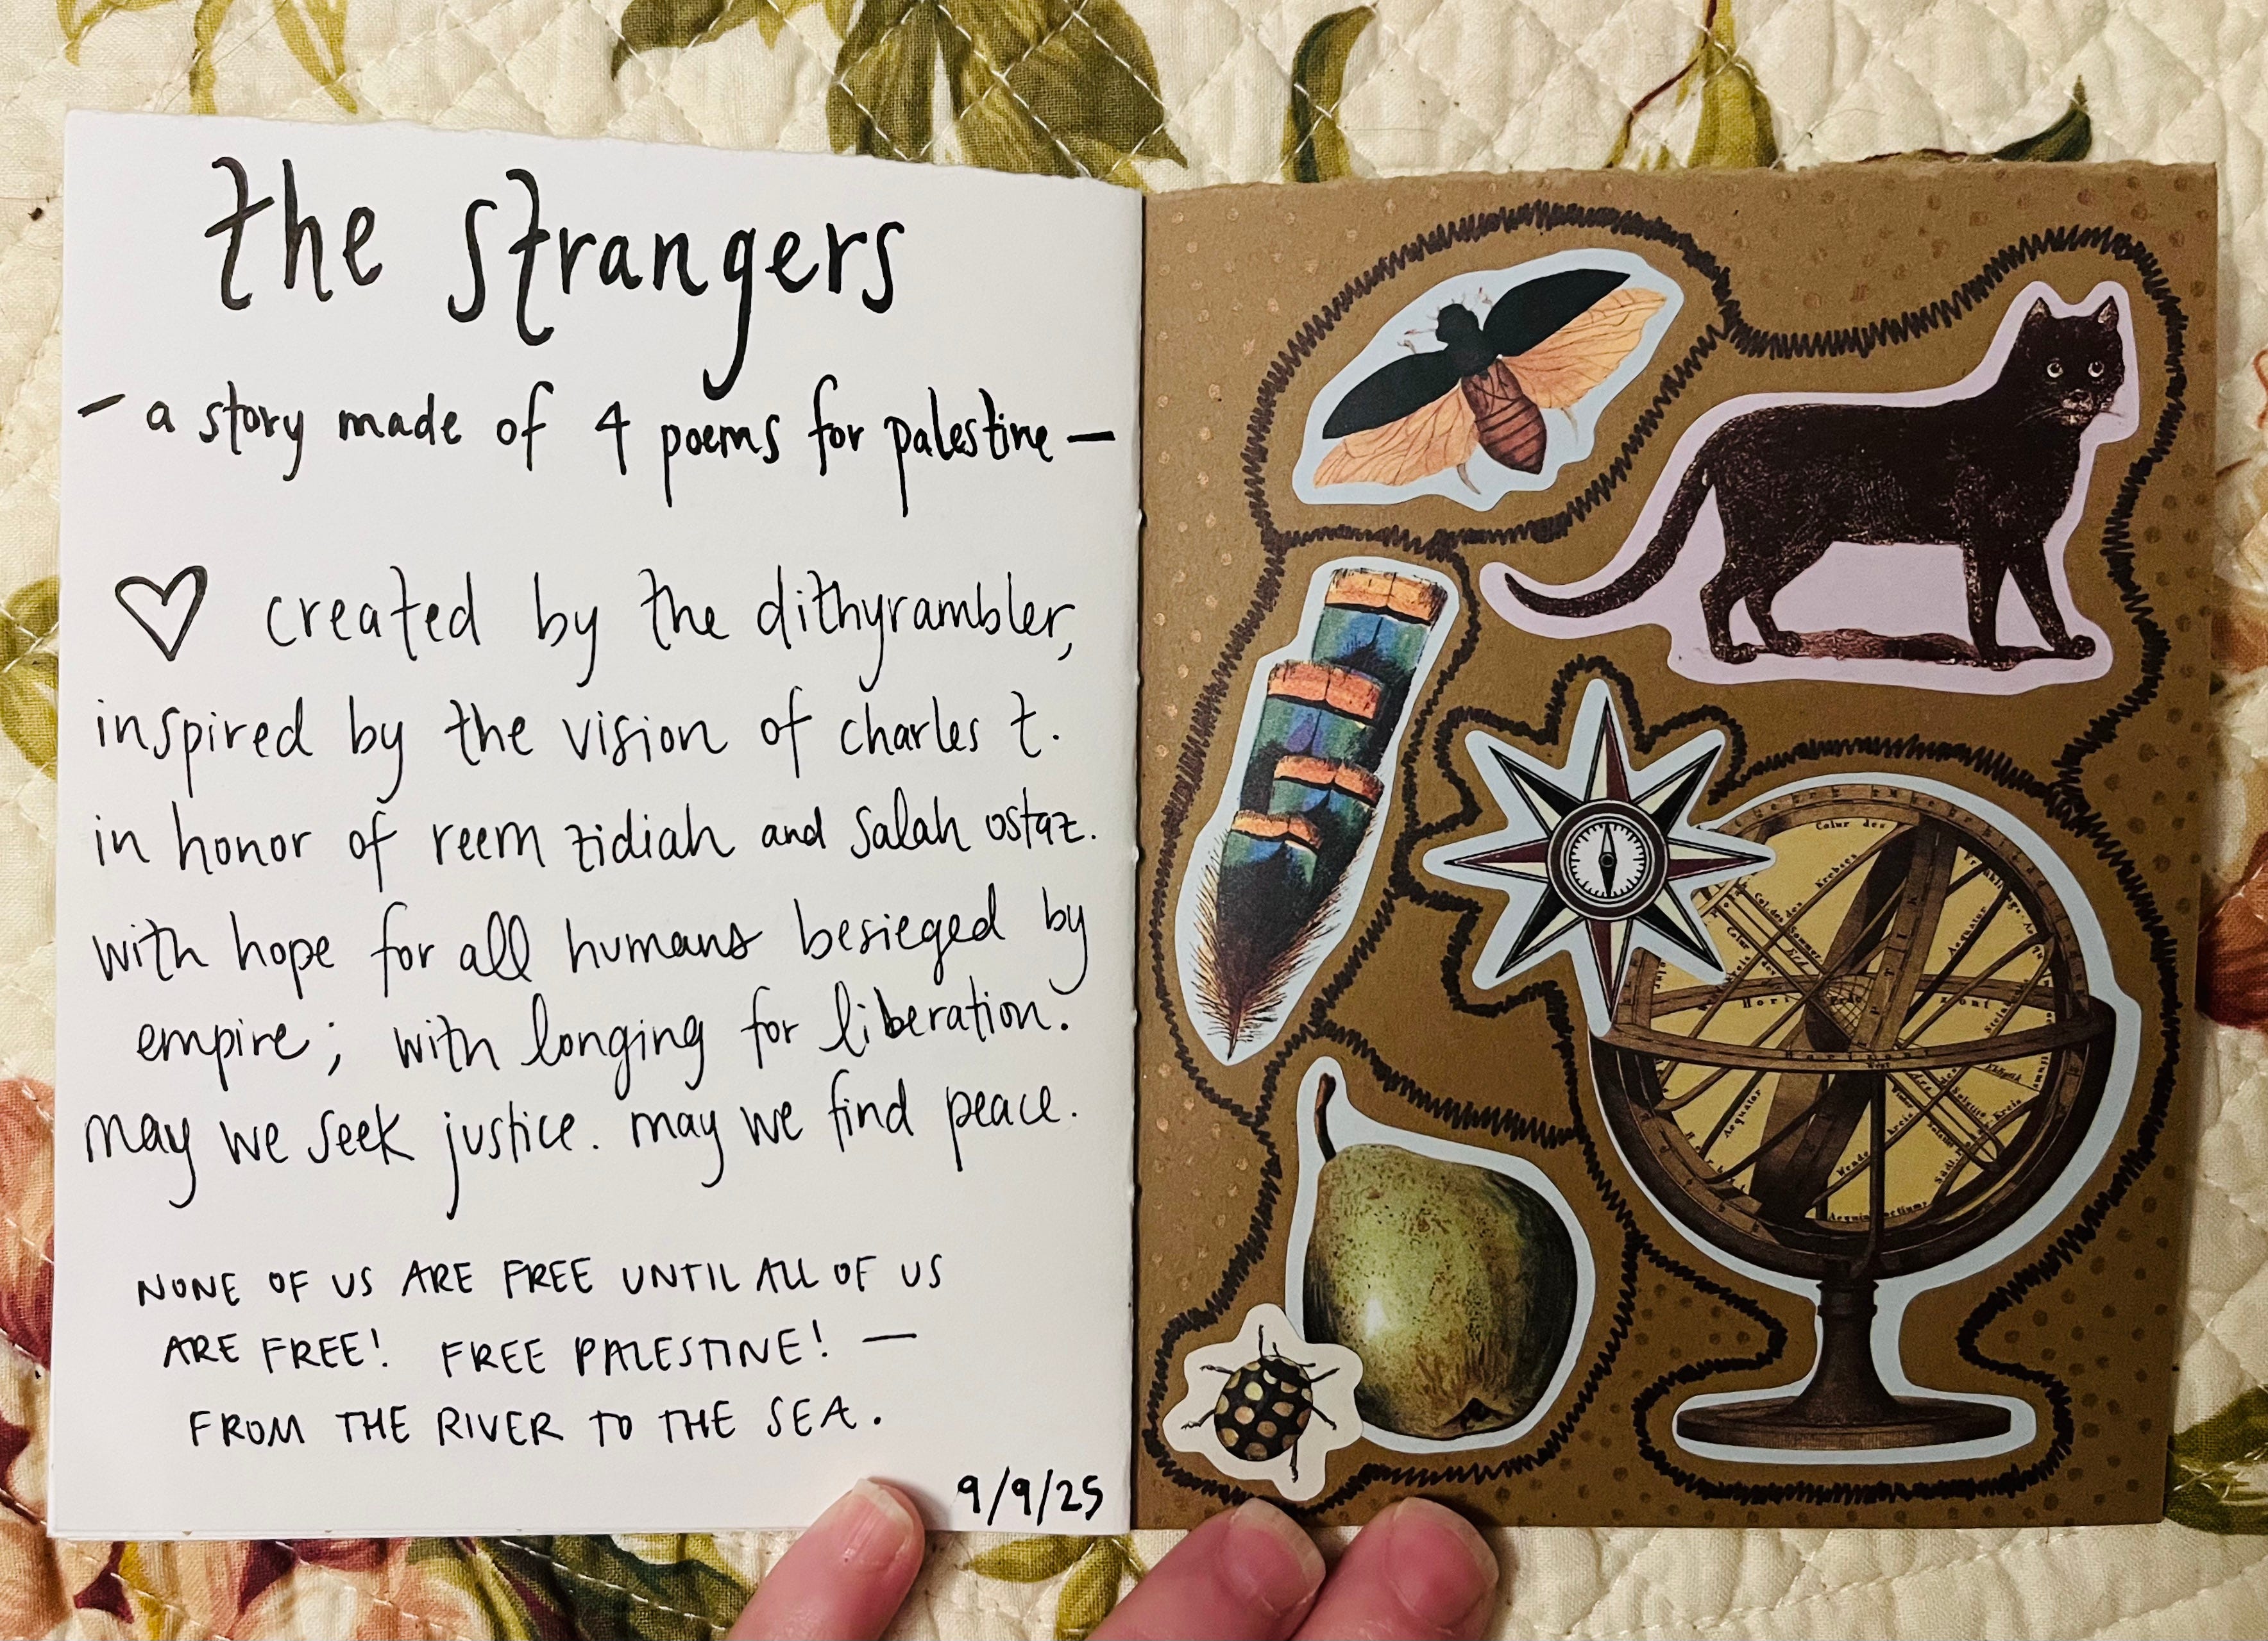 the strangers
– a story made of 4 poems for palestine –
♡ created by the dithyrambler,
inspired by the vision of charles t.
in honor of reem zidiah and salah ostaz.
with hope for all humans besieged by
empire; with longing for liberation.
may we seek justice. may we find peace.
NONE OF US ARE FREE UNTIL ALL OF US
ARE FREE! FREE PALESTINE! –
FROM THE RIVER TO THE SEA.
9/9/25
Colur des
Krebses
Aequator
Horizont
Horizont
West
Aequator
Wende